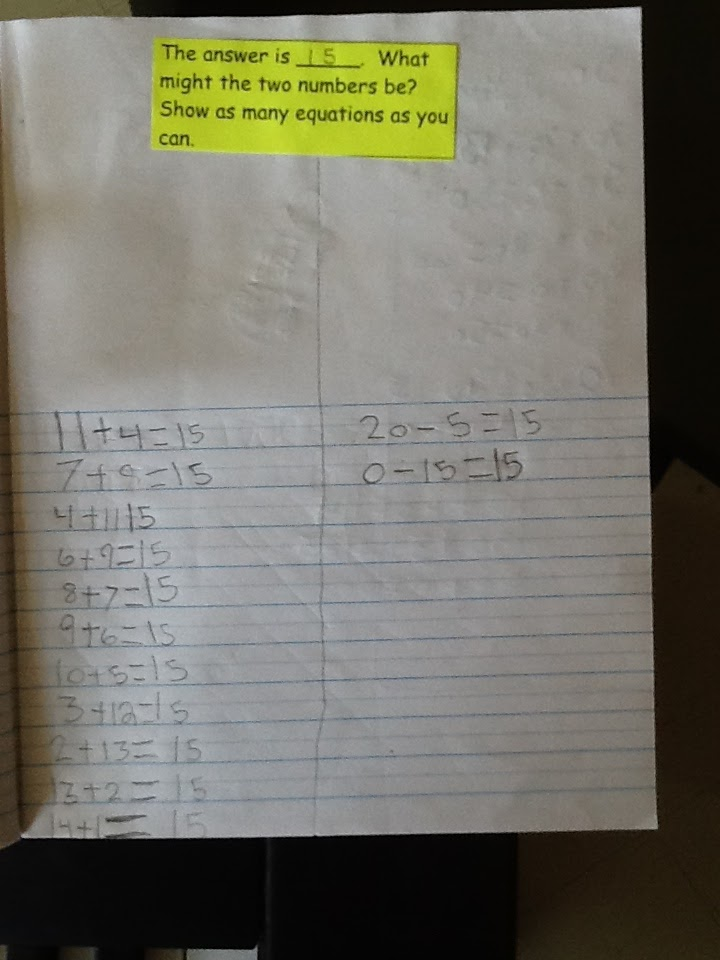 The answer is 15. What
might the two numbers be?
Show as many equations as you
can.
11+4=15
7+8=15
4+1115
6+9=15
8+7=15
9+6=15
10+5=15
3+12=15
2+13=15
13+2=15
14+1=15
20-5=15
0-15=15